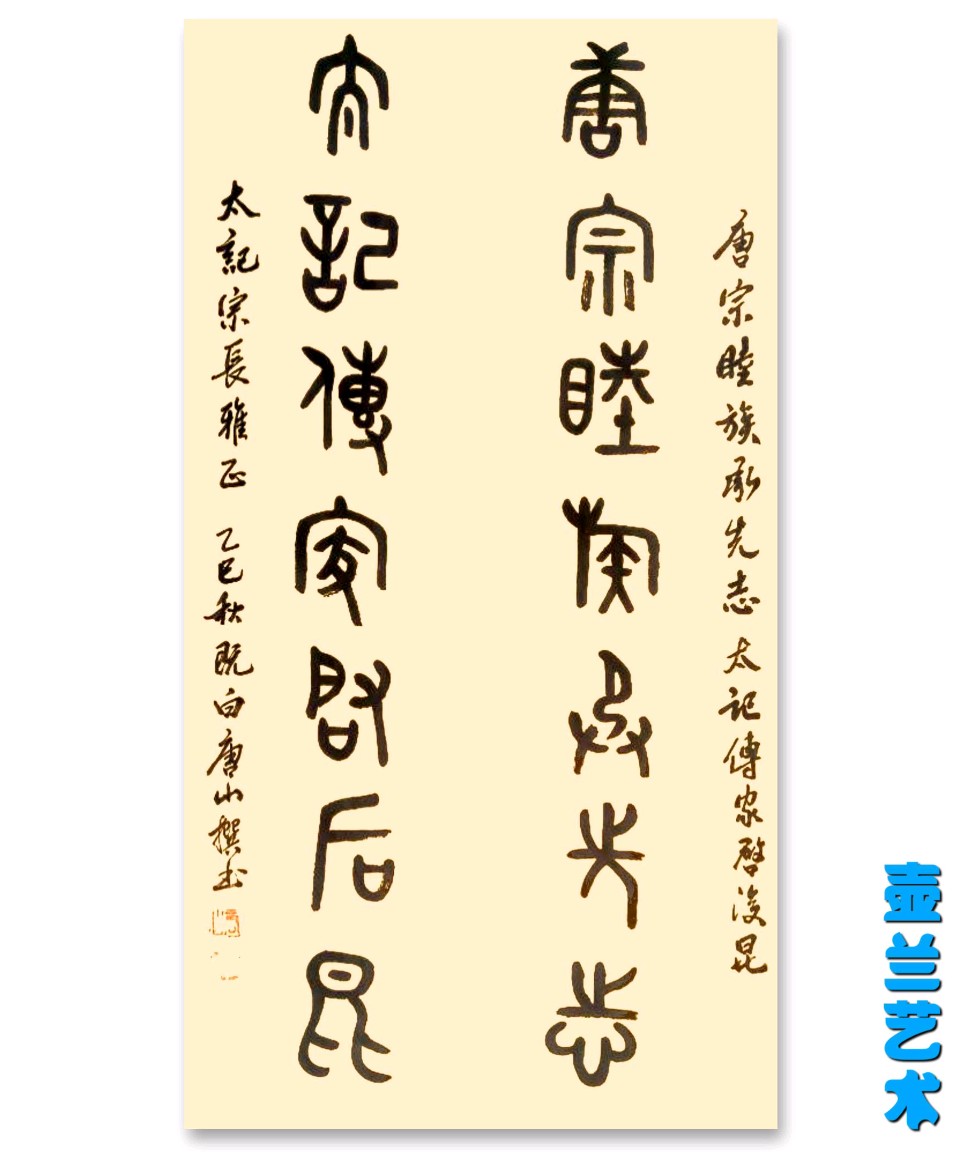 唐宗睦族承先志太記傳家啓後昆
唐宗睦族承先志
太記傳家啓后昆
太記宗長雅正 乙巳秋既白唐山撰书
壶兰艺术